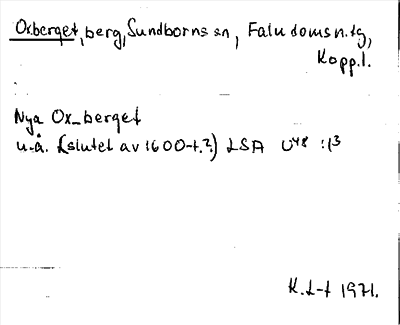 Oxberget, berg, Sundborns sn, Falu domsn. tg,
Kopp.l.
Nya Ox_berget
u.å. (slutet av 1600-t.?) LSA U48 :13
K.L-t 1971.